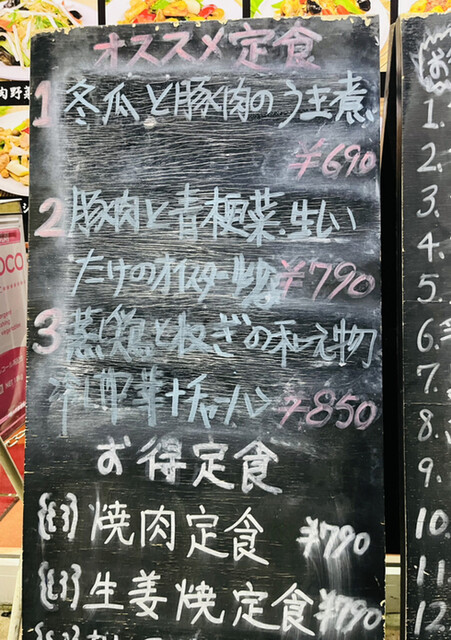 オススメ定食
1 冬瓜と豚肉のうま煮
¥690
2 豚肉と青梗菜、生しい
たけのオイスター炒 ¥790
3 蒸鶏とねぎの和え物
チャーハン ¥850
お得定食
焼肉定食 ¥790
生姜焼定食 ¥790
1.
2.
3.
4.
5.
6.
7.
8.
9.
10
11.
12.